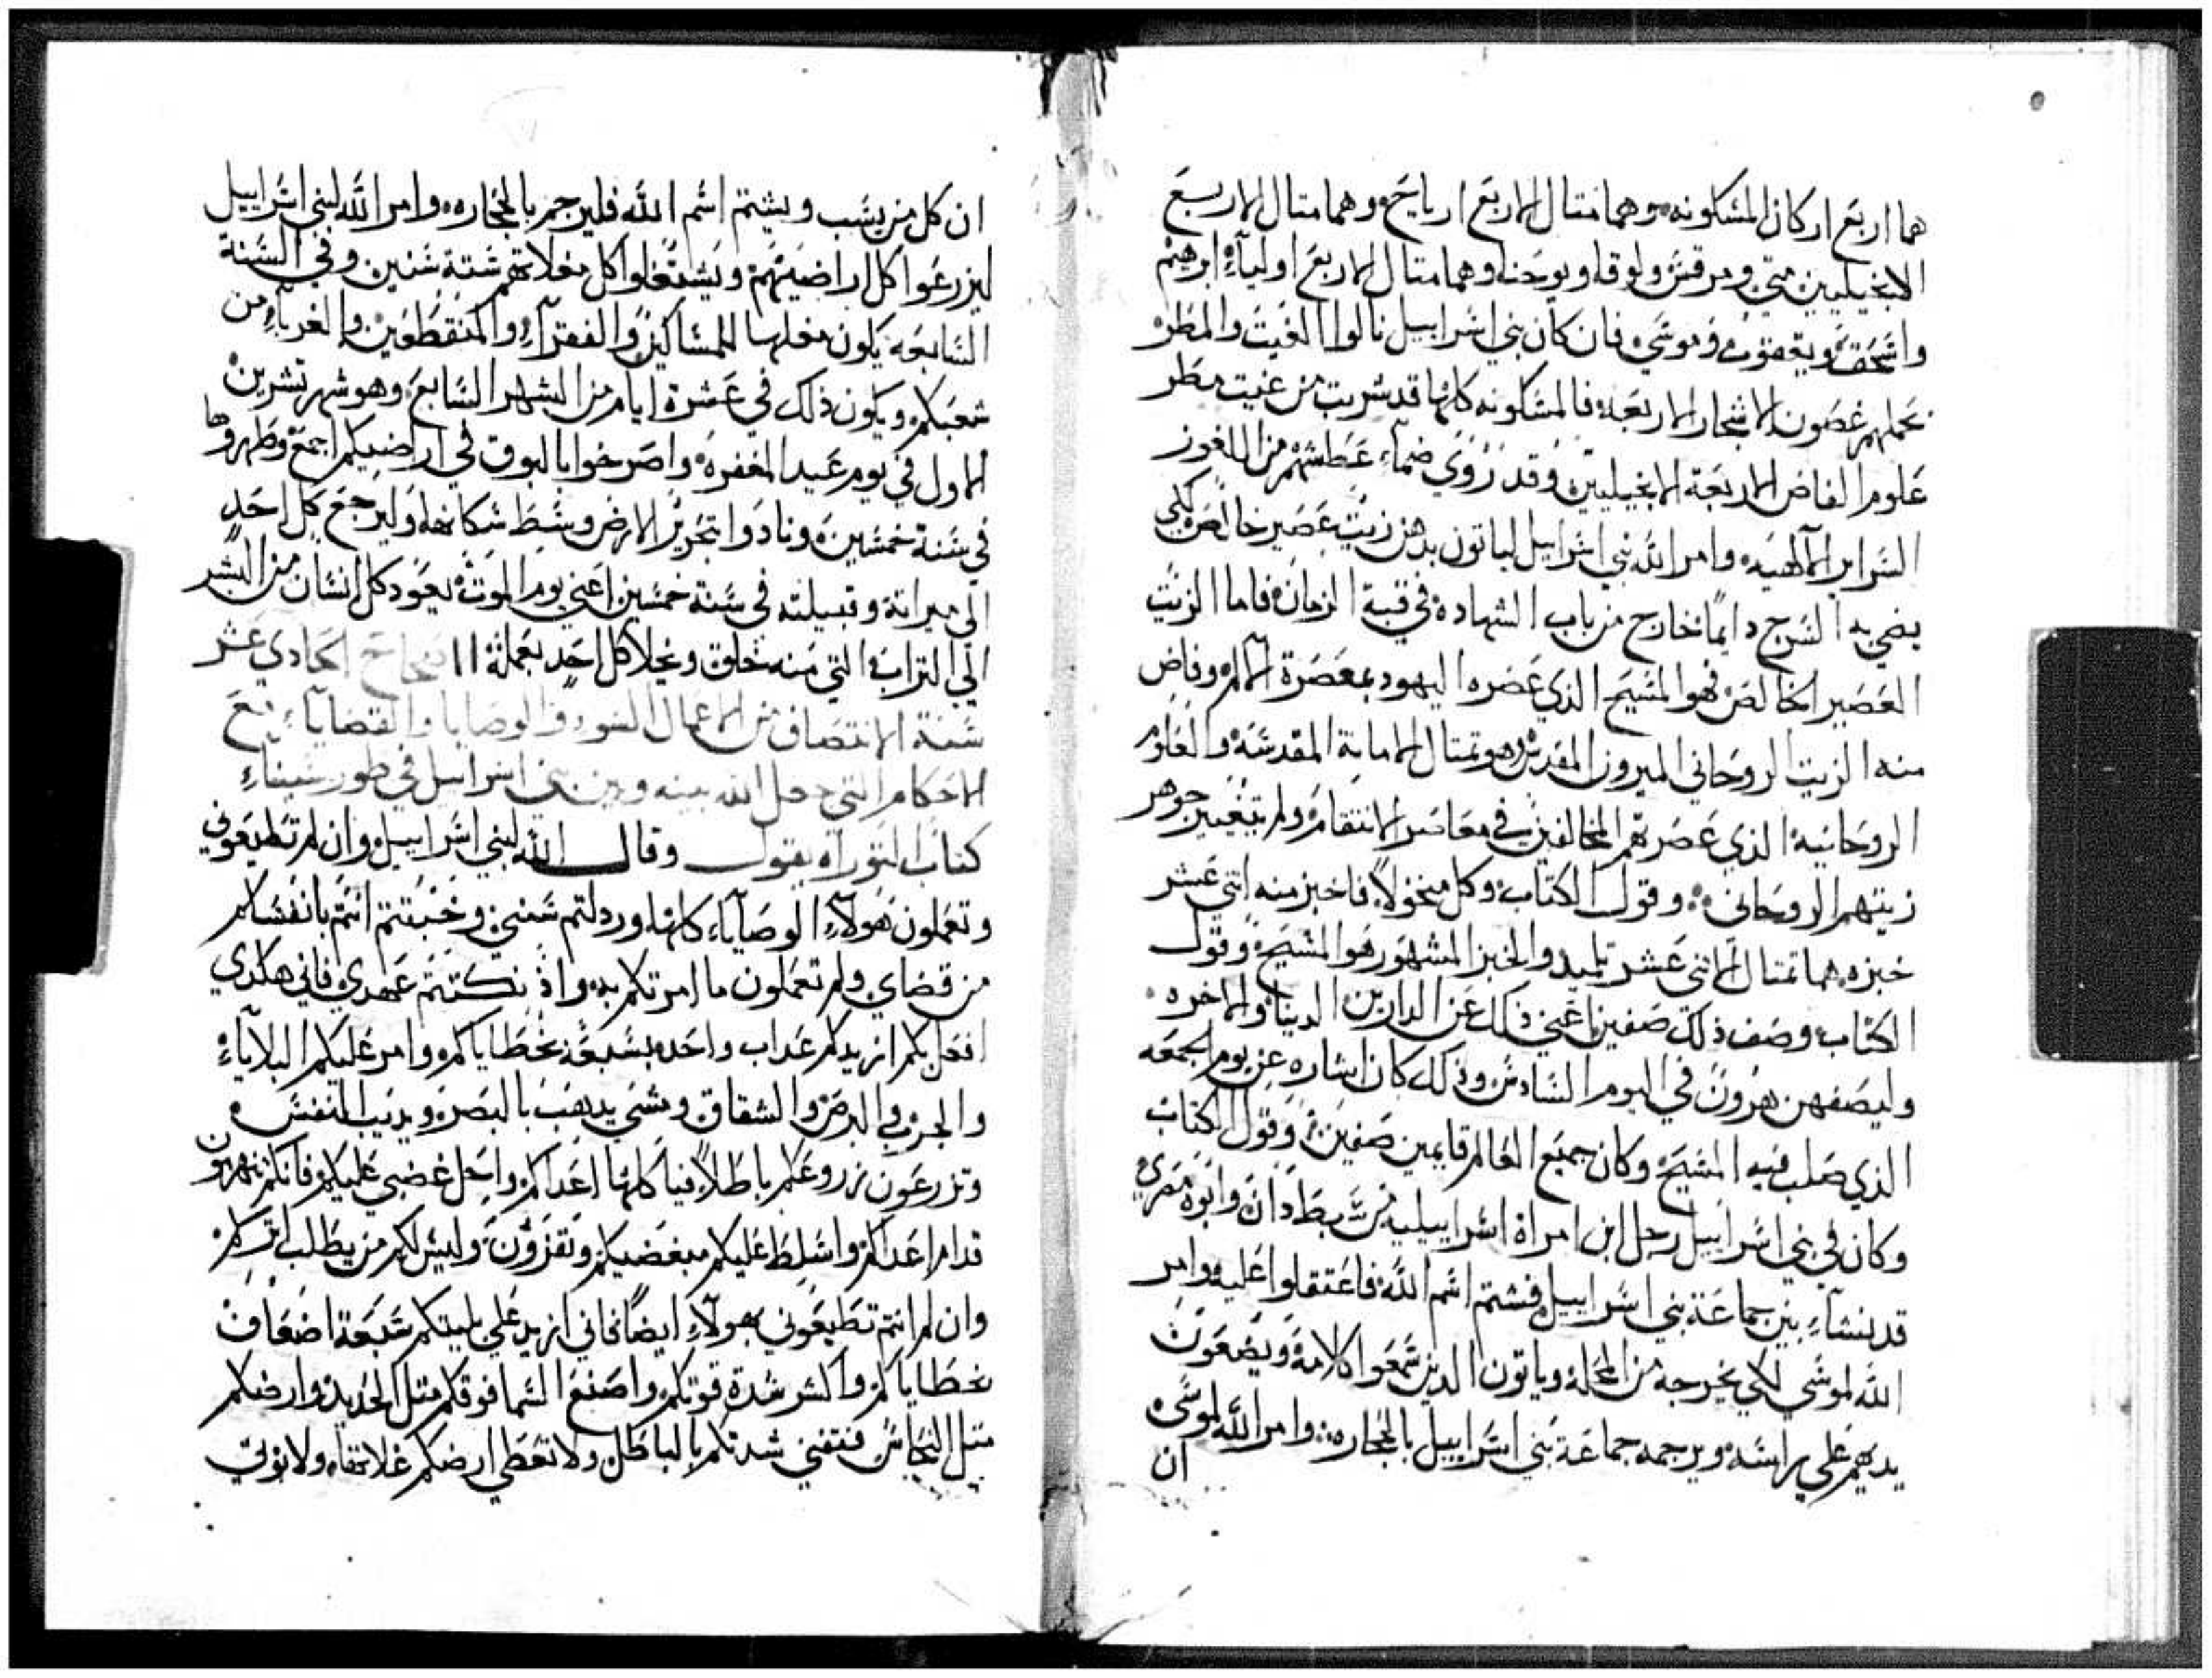 هما اربع اركان المسكونه وهما متال الاربع ارياح وهما متال الاربع
الانجيليين متي ومرقس ولوقا ويوحنا وهما متال الاربع اولياء ابرهيم
واسحق ويعقوب وموسي فان كان بني اسراييل نالوا الغيت والمطر
بحملهم غصون الاشجار الاربعه فالمسكونه كلها قد شربت من غيت مطر
علوم الفاض الاربعة الانجيليين وقد روي ضماء عطشهم من اللغوز
السراير الالهيه وامر الله بني اسراييل لياتون بدهن زيت عصير خالص لكي
يضي به السرج دايما خارج من باب الشهاده في قبة الزمان فاما الزيت
العصير الخالص فهو المسيح الذي عصره اليهود بمعصرة الالام وفاض
منه الزيت الروحاني الميرون المقدس وهو تمتال الامانة المقدسه والعلوم
الروحانيه الذي عصرتهم المخالفين في معاصر الانتقام ولم يتغير جوهر
زيتهم الروحاني وقول الكتاب وكل منخولا فاخبز منه اتني عشر
خبزه هما تمتال الاتني عشر تلميد والخبز المشهور هو المسيح وقول
الكتاب وصف ذلك صفين اعني ذلك عن الدارين الدنيا والاخره
وليصفهن هرون في اليوم السادس وذلك كان اشاره عن يوم الجمعه
الذي صلب فيه المسيح وكان جميع العالم قايمين صفين وقول الكتاب
وكان في بني اسراييل رجل ابن امراة اسراييليه من سبط دان وابوه مصري
قد نشاء بين جماعة بني اسراييل فشتم اسم الله فاعتقلوا عليه وامر
الله لموسي لكي يخرجه من المحله وياتون الدين سمعوا كلامه ويضعون
يديهم علي راسه ويرجمه جماعة بني اسراييل بالحجاره وامر الله لموسي
ان
ان كل من يسب ويشتم اسم الله فليرجم بالحجاره وامر الله لبني اسراييل
ليزرعوا كل اراضيهم ويستغلوا كل مغلاتهم ستة سنين وفي السنة
السابعه يكون مغلها للمساكين والفقراء والمنقطعين والغرباء من
شعبكم ويكون ذلك في عشرة ايام من الشهر السابع وهو شهر تشرين
الاول في يوم عيد المغفره واصرخوا بالبوق في اراضيكم اجمع وطهروها
في سنة خمسين ونادوا بتحرير الارض وسط سكانها وليرجع كل احد
الي ميراته وقبيلته في سنة خمسين اعني يوم الموت يعود كل انسان من البشر
الي التراب التي منه خلق ويخلا كل احد بعمله الاصحاح الحادي عشر
سنة الانتصاف من الاعمال السوء والوصايا والقضاياء مع
الاحكام التي جعل الله بينه وبين بني اسراييل في طور سيناء
كتاب التوراه يقول وقال الله لبني اسراييل وان لم تطيعوني
وتعملون هولاء الوصاياء كلها وردلتم سنني وخبتتم انتم بانفسكم
من قضاي ولم تعملون ما امرتكم به واذ نكتتم عهدي فاني هكدي
افعل بكم ازيدكم عداب واحده بسبعة بخطاياكم وامر عليكم البلاياء
والجرب والبرص والشقاق وشي يدهب بالبصر ويديب النفس
وتزرعون زروعكم باطلا فياكلها اعداكم واحل غضبي عليكم فانكم تهربون
قدام اعداكم واسلط عليكم مبغضيكم وتفزون وليس لكم من يطلب اتركم
وان لم انتم تطيعوني بهولاء ايضا فاني ازيد علي بليتكم سبعة اضعاف
بخطاياكم واكسر شدة قوتكم واصنع السما فوقكم متل الحديد وارضكم
متل النحاس فتفني شدتكم بالباطل ولا تعطي ارضكم غلاتها ولا يوتي